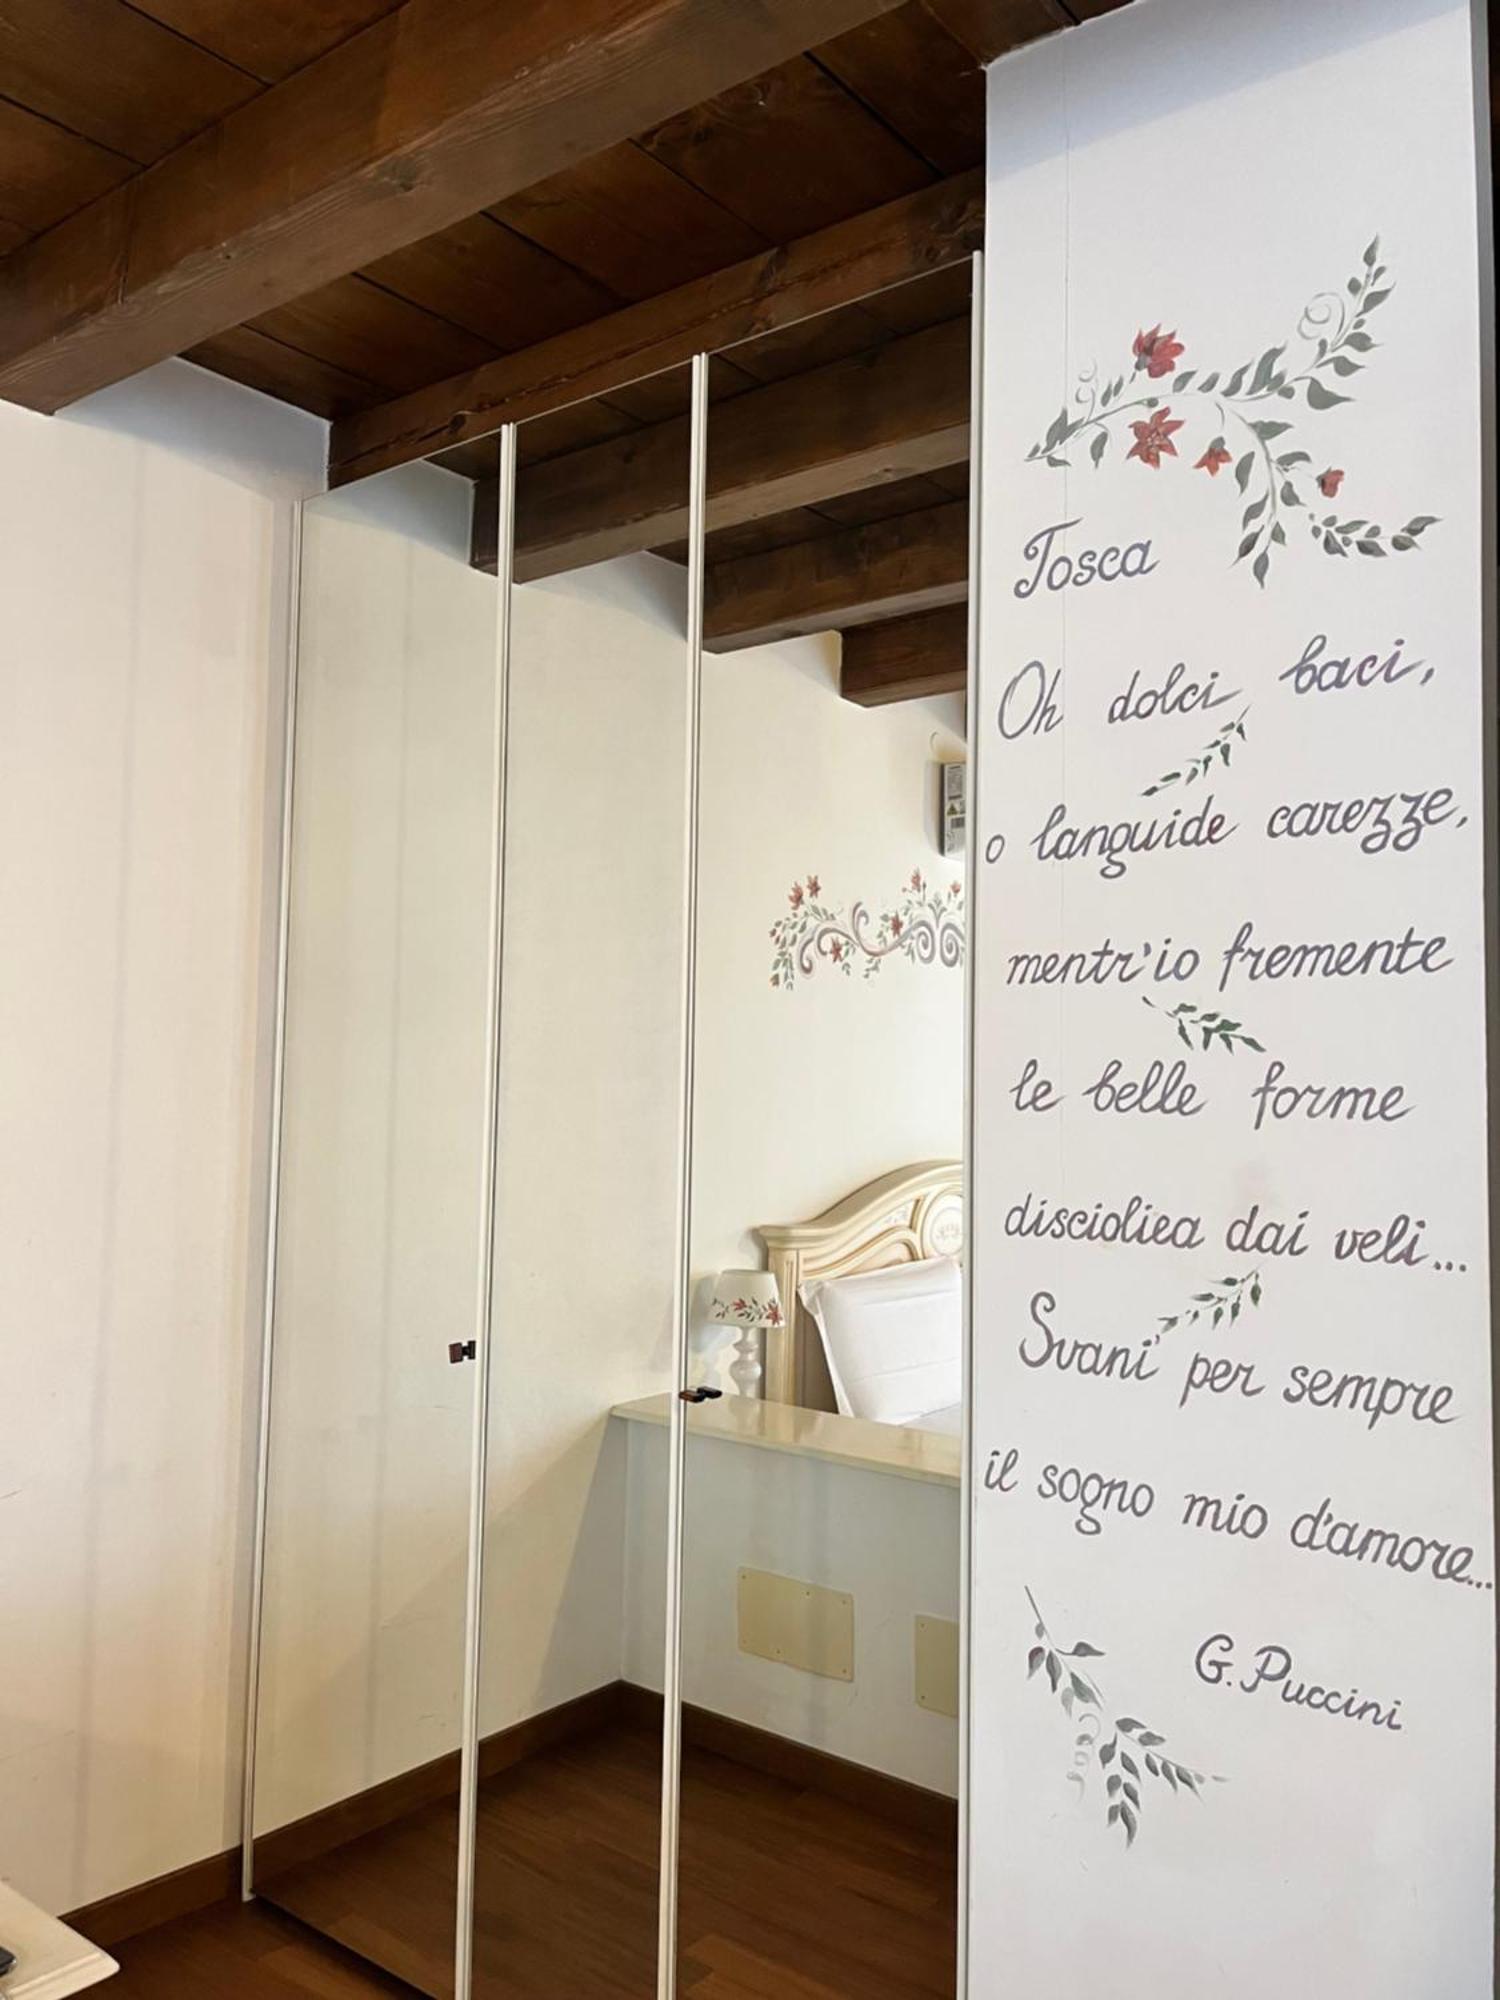 Tosca
Oh dolci baci,
o languide carezze,
mentr'io fremente
le belle forme
disciogliea dai veli...
Svani' per sempre
il sogno mio d'amore...
G. Puccini